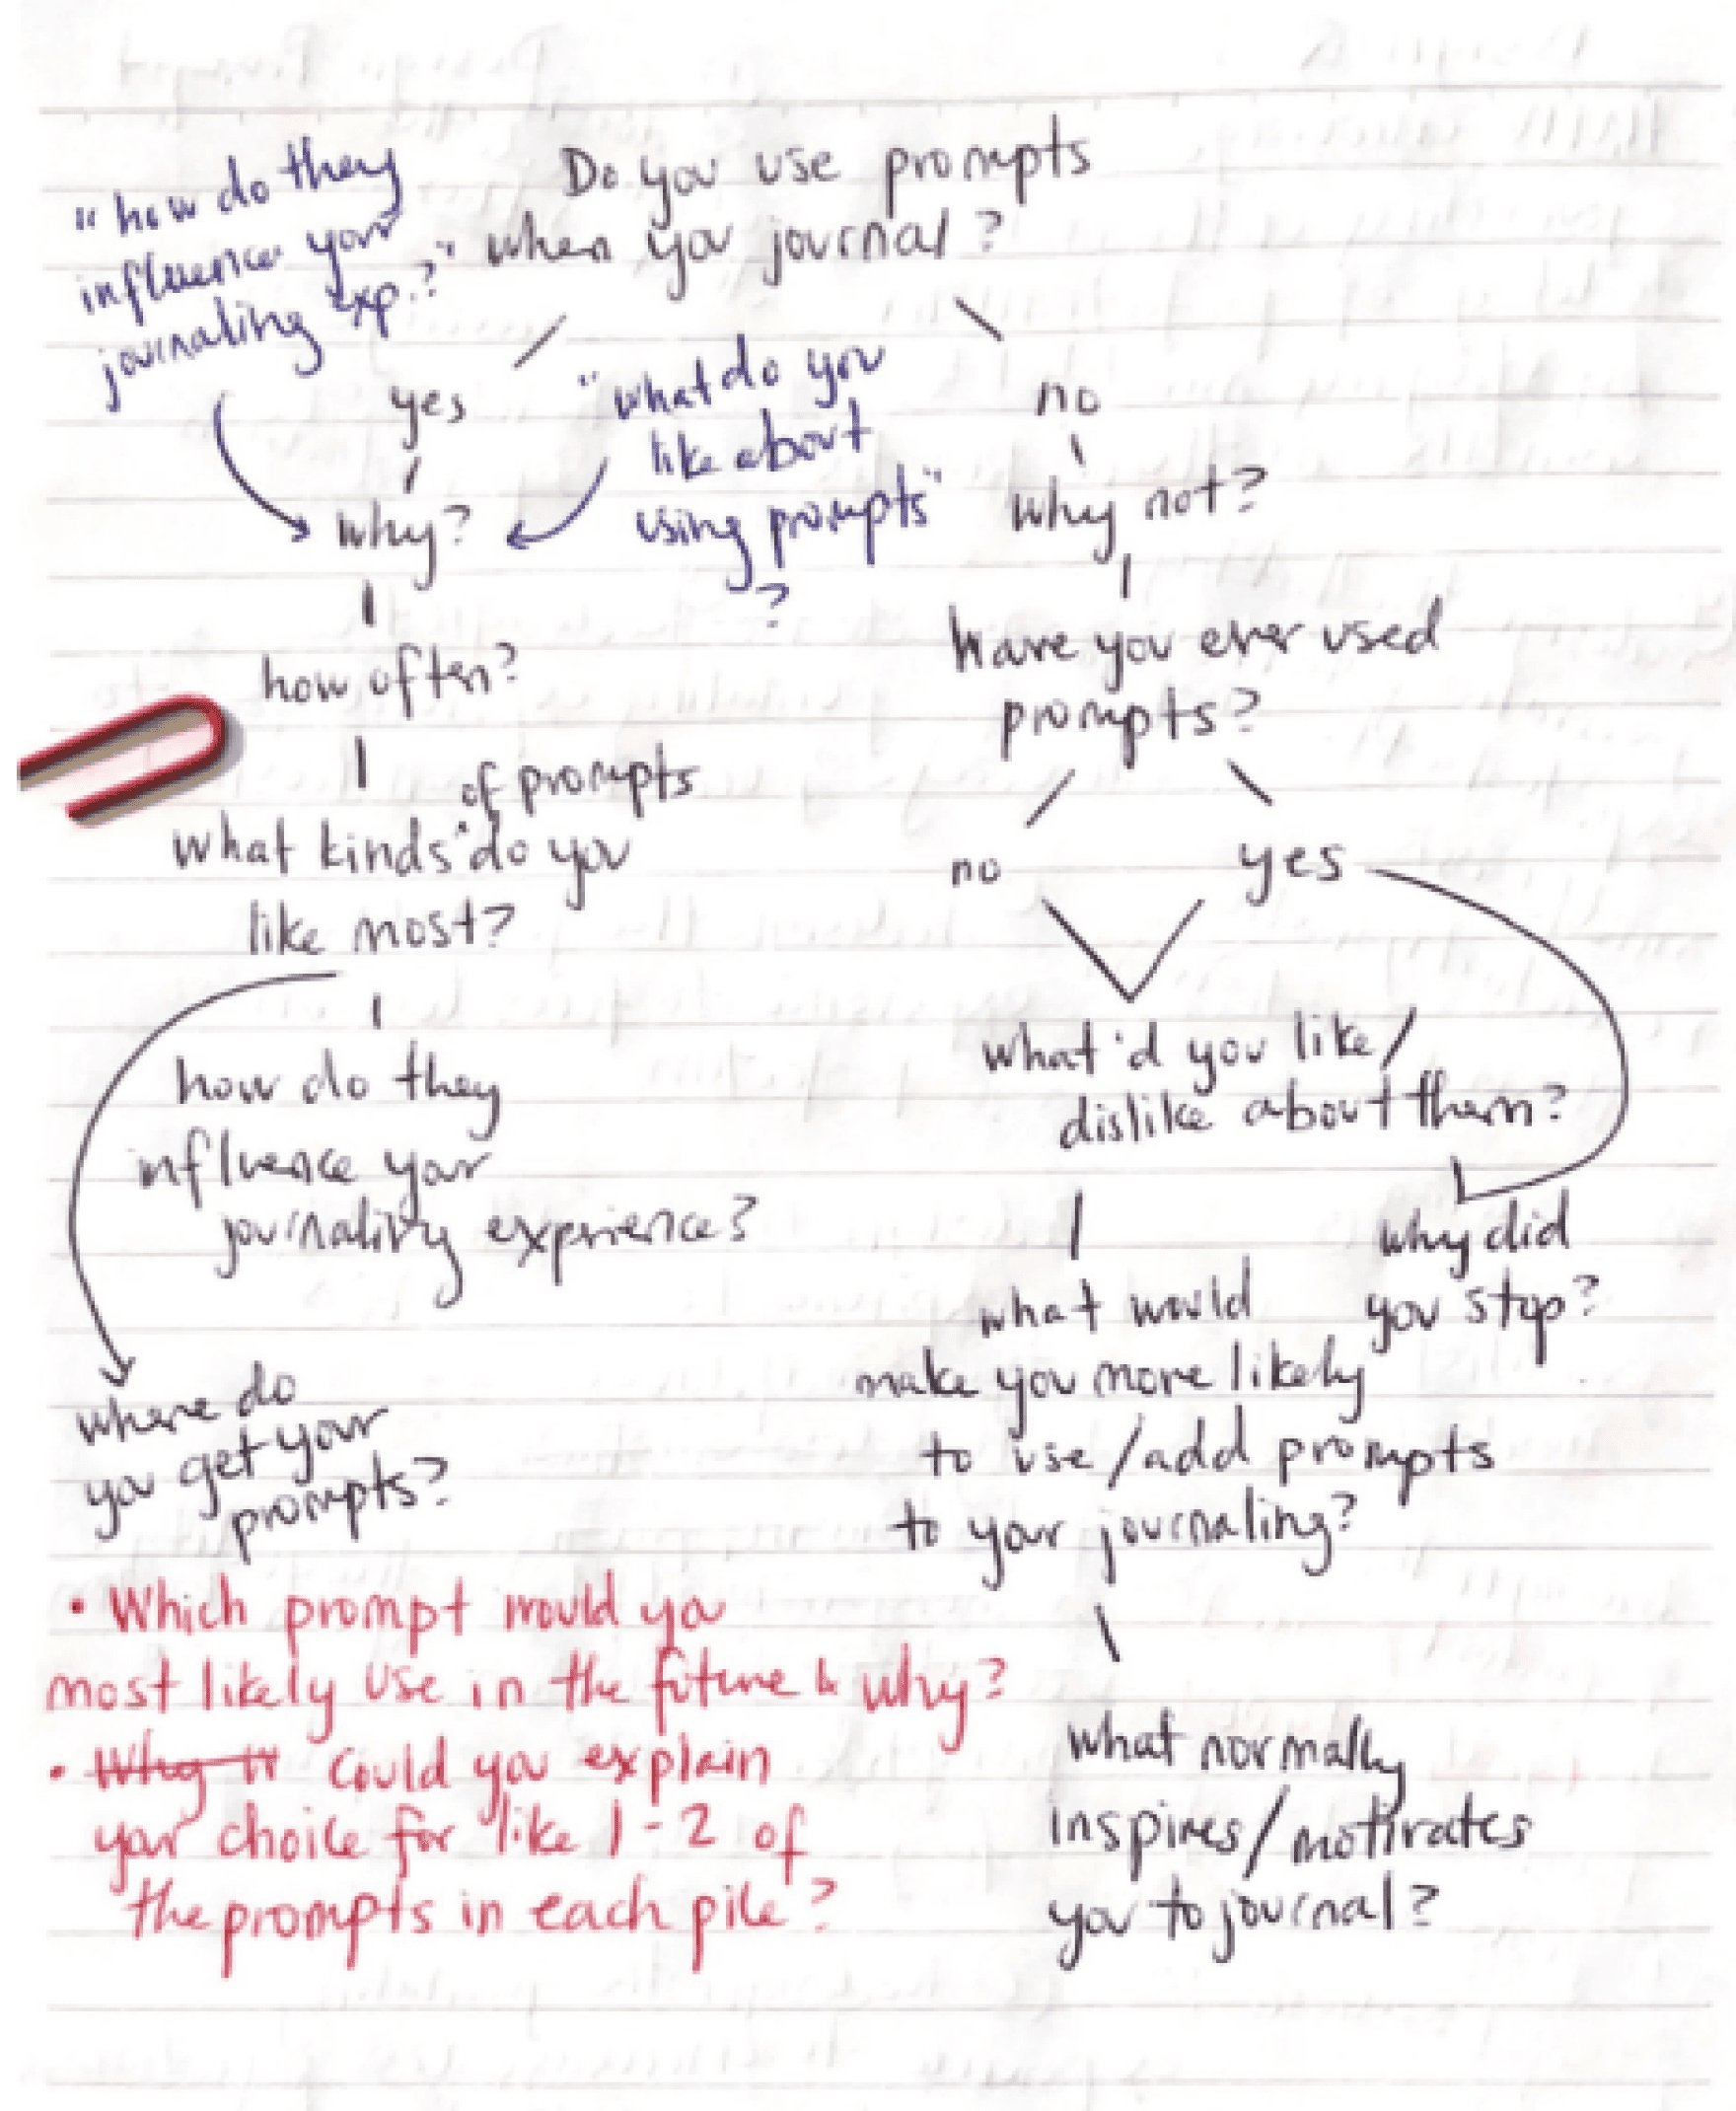 Do you use prompts
when you journal?
"how do they
influence your
journaling exp.?"
yes
"what do you
like about
using prompts"
?
why?
how often?
of prompts
what kinds do you
like most?
how do they
influence your
journaling experience?
where do
you get your
prompts?
no
why not?
have you ever used
prompts?
no
yes
what'd you like/
dislike about them?
why did
you stop?
what would
make you more likely
to use/add prompts
to your journaling?
what normally
inspires/motivates
you to journal?
• Which prompt would you
most likely use in the future & why?
• Why Could you explain
your choice for like 1-2 of
the prompts in each pile?